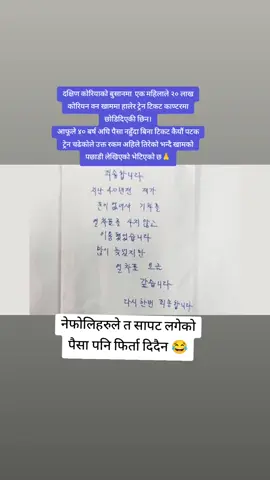 दक्षिण कोरियाको बुसानमा एक महिलाले २० लाख
कोरियन वन खाममा हालेर ट्रेन टिकट काण्टरमा
छोडिदिएकी छिन।
आफूले ४० बर्ष अघि पैसा नहुँदा बिना टिकट कैयौं पटक
ट्रेन चढेकोले उक्त रकम अहिले तिरेको भन्दै खामको
पछाडी लेखिएको भेटिएको छ🙏
죄송합니다.
지난 40년전 제가
돈이 없어서 기차를
열차표를 사지 않고
이용했었습니다
많이 늦었지만
열차표 요금
갚습니다.
다시한번 죄송합니다.
नेफोलिहरुले त सापट लगेको
पैसा पनि फिर्ता दिदैन 😂